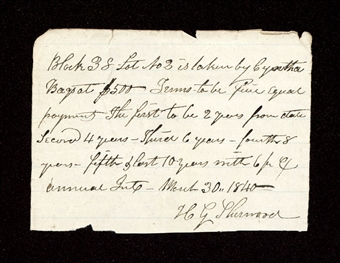 Block 38 Lot No 2 is taken by Cyntha
Bagat $500 Terms to be five equal
payment The first to be 2 years from date
Second 4 years - Third 6 years - fourth 8
years - fifth & last 10 years with 6 p. c
annual Int - March 30. 1840
H G Sherwood